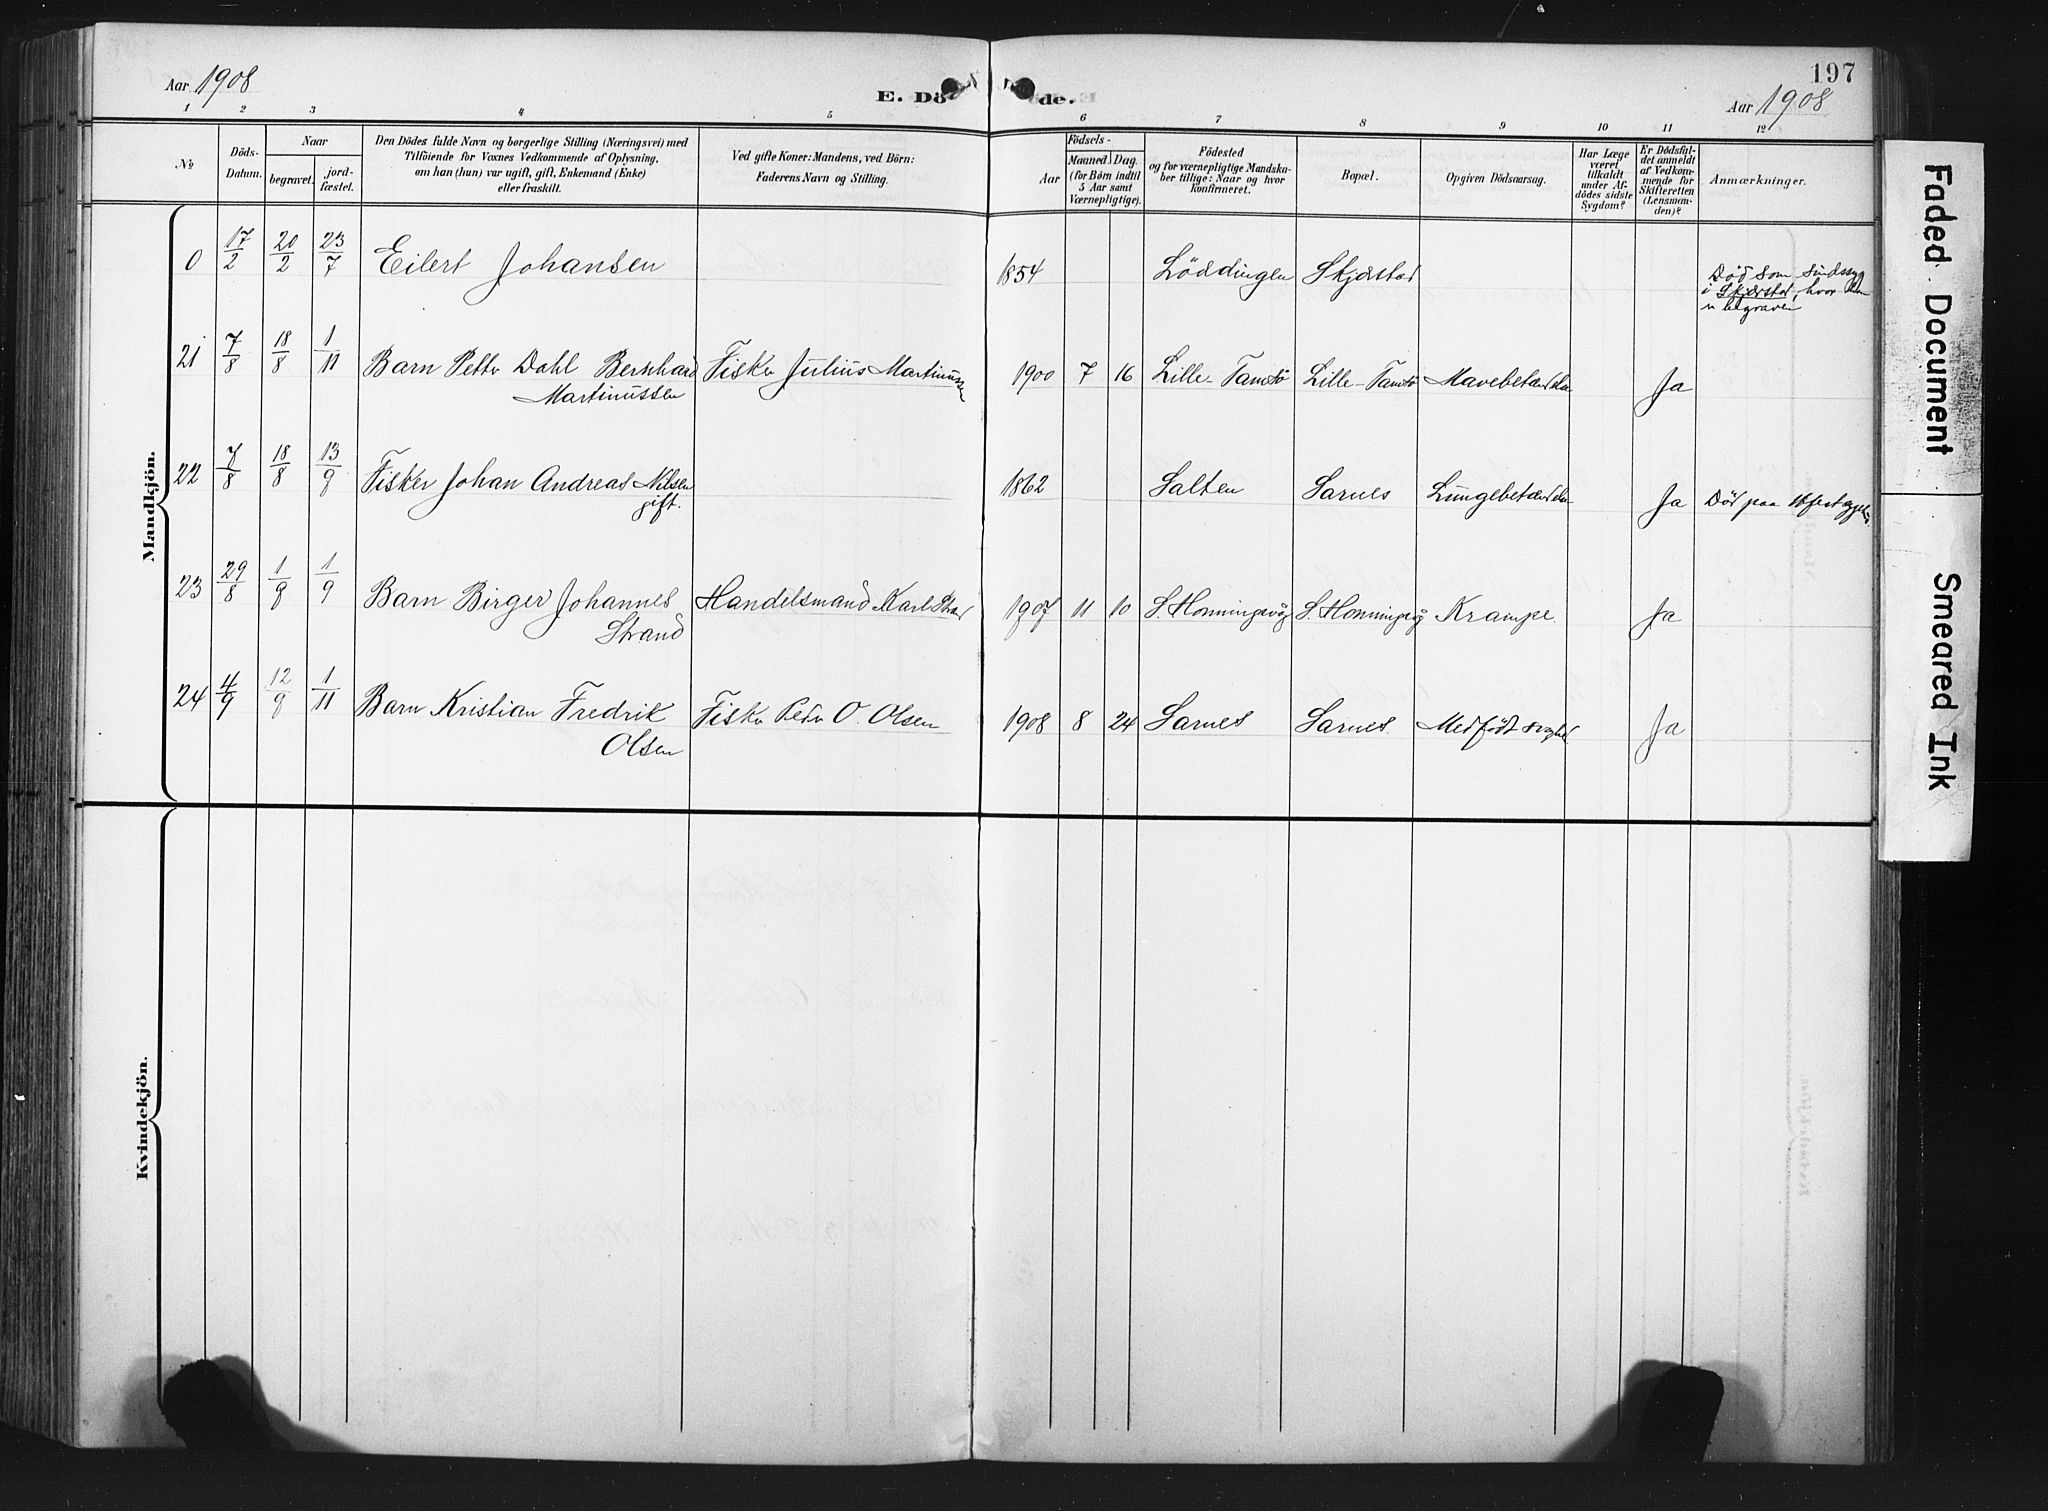 197
Aar 1908
E. Dö de.
Aar 1908
1 2 3 4 5 6 7 8 9 10 11 12
No
Döds-
Datum.
Naar
begravet.
jord-
fæstet.
Den Dödes fulde Navn og borgerlige Stilling (Næringsvei) med
Tilföiende for Voxnes Vedkommende af Oplysning,
om han (hun) var ugift, gift, Enkemand (Enke)
eller fraskilt.
Ved gifte Koner: Mandens, ved Börn:
Faderens Navn og Stilling.
Födsels-
Aar
Maaned.
Dag.
(for Börn indtil
5 Aar samt
Værnepligtige).
Födested
og for værnepligtige Mandska-
ber tillige: Naar og hvor
konfirmeret.
Bopæl.
Opgiven Dödsaarsag.
Har Læge
været
tilkaldt
under Af-
dödes sidste
Sygdom?
Er Dödsfal-
det anmeldt
af Vedkom-
mende for
Skifteretten
(Lensman-
den)?
Anmærkninger.
Mandkjön.
0 17/2 20/2 23/7 Eilert Johansen 1854 Löddingen Skjerstad
Død som sindssyg
i Skjerstad, hvor han
begraven
21 7/8 18/8 1/11 Barn Petter Dahl Bernhard Fisker Julius Martinussen 1900 7 16 Lille-Tamsö Lille-Tamsö Mavebetændelse Ja
Martinussen
22 7/8 18/8 13/9 Fisker Johan Andreas Nilsen 1862 Salten Sarnes Lungebetændelse Ja Död paa
gift.
23 29/8 1/9 1/9 Barn Birger Johannes Handelsmand Karl Strand 1907 11 10 S. Honningsvåg S. Honningsvåg Krampe Ja
Strand
24 4/9 12/9 1/11 Barn Kristian Fredrik Fisker Peder O. Olsen 1908 8 24 Sarnes Sarnes Medfödt svaghed Ja
Olsen
Kvindekjön.
Faded Document
Smeared Ink